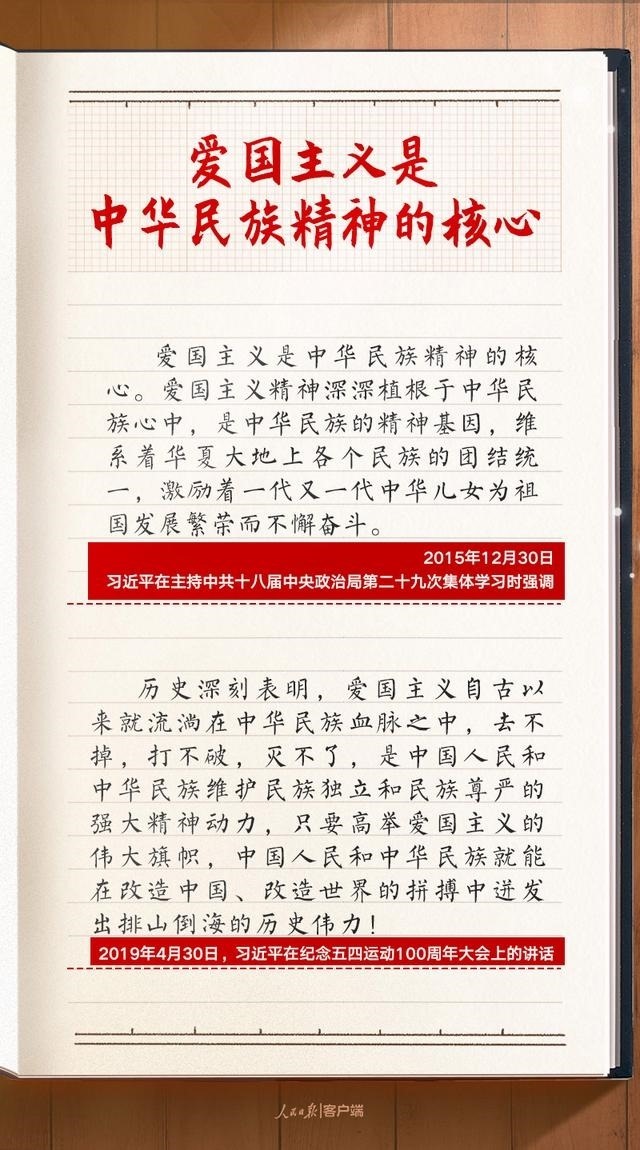 爱国主义是
中华民族精神的核心
爱国主义是中华民族精神的核
心。爱国主义精神深深植根于中华民
族心中，是中华民族的精神基因，维
系着华夏大地上各个民族的团结统
一，激励着一代又一代中华儿女为祖
国发展繁荣而不懈奋斗。
2015年12月30日
习近平在主持中共十八届中央政治局第二十九次集体学习时强调
历史深刻表明，爱国主义自古以
来就流淌在中华民族血脉之中，去不
掉，打不破，灭不了，是中国人民和
中华民族维护民族独立和民族尊严的
强大精神动力，只要高举爱国主义的
伟大旗帜，中国人民和中华民族就能
在改造中国、改造世界的拼搏中迸发
出排山倒海的历史伟力！
2019年4月30日，习近平在纪念五四运动100周年大会上的讲话
人民日报|客户端